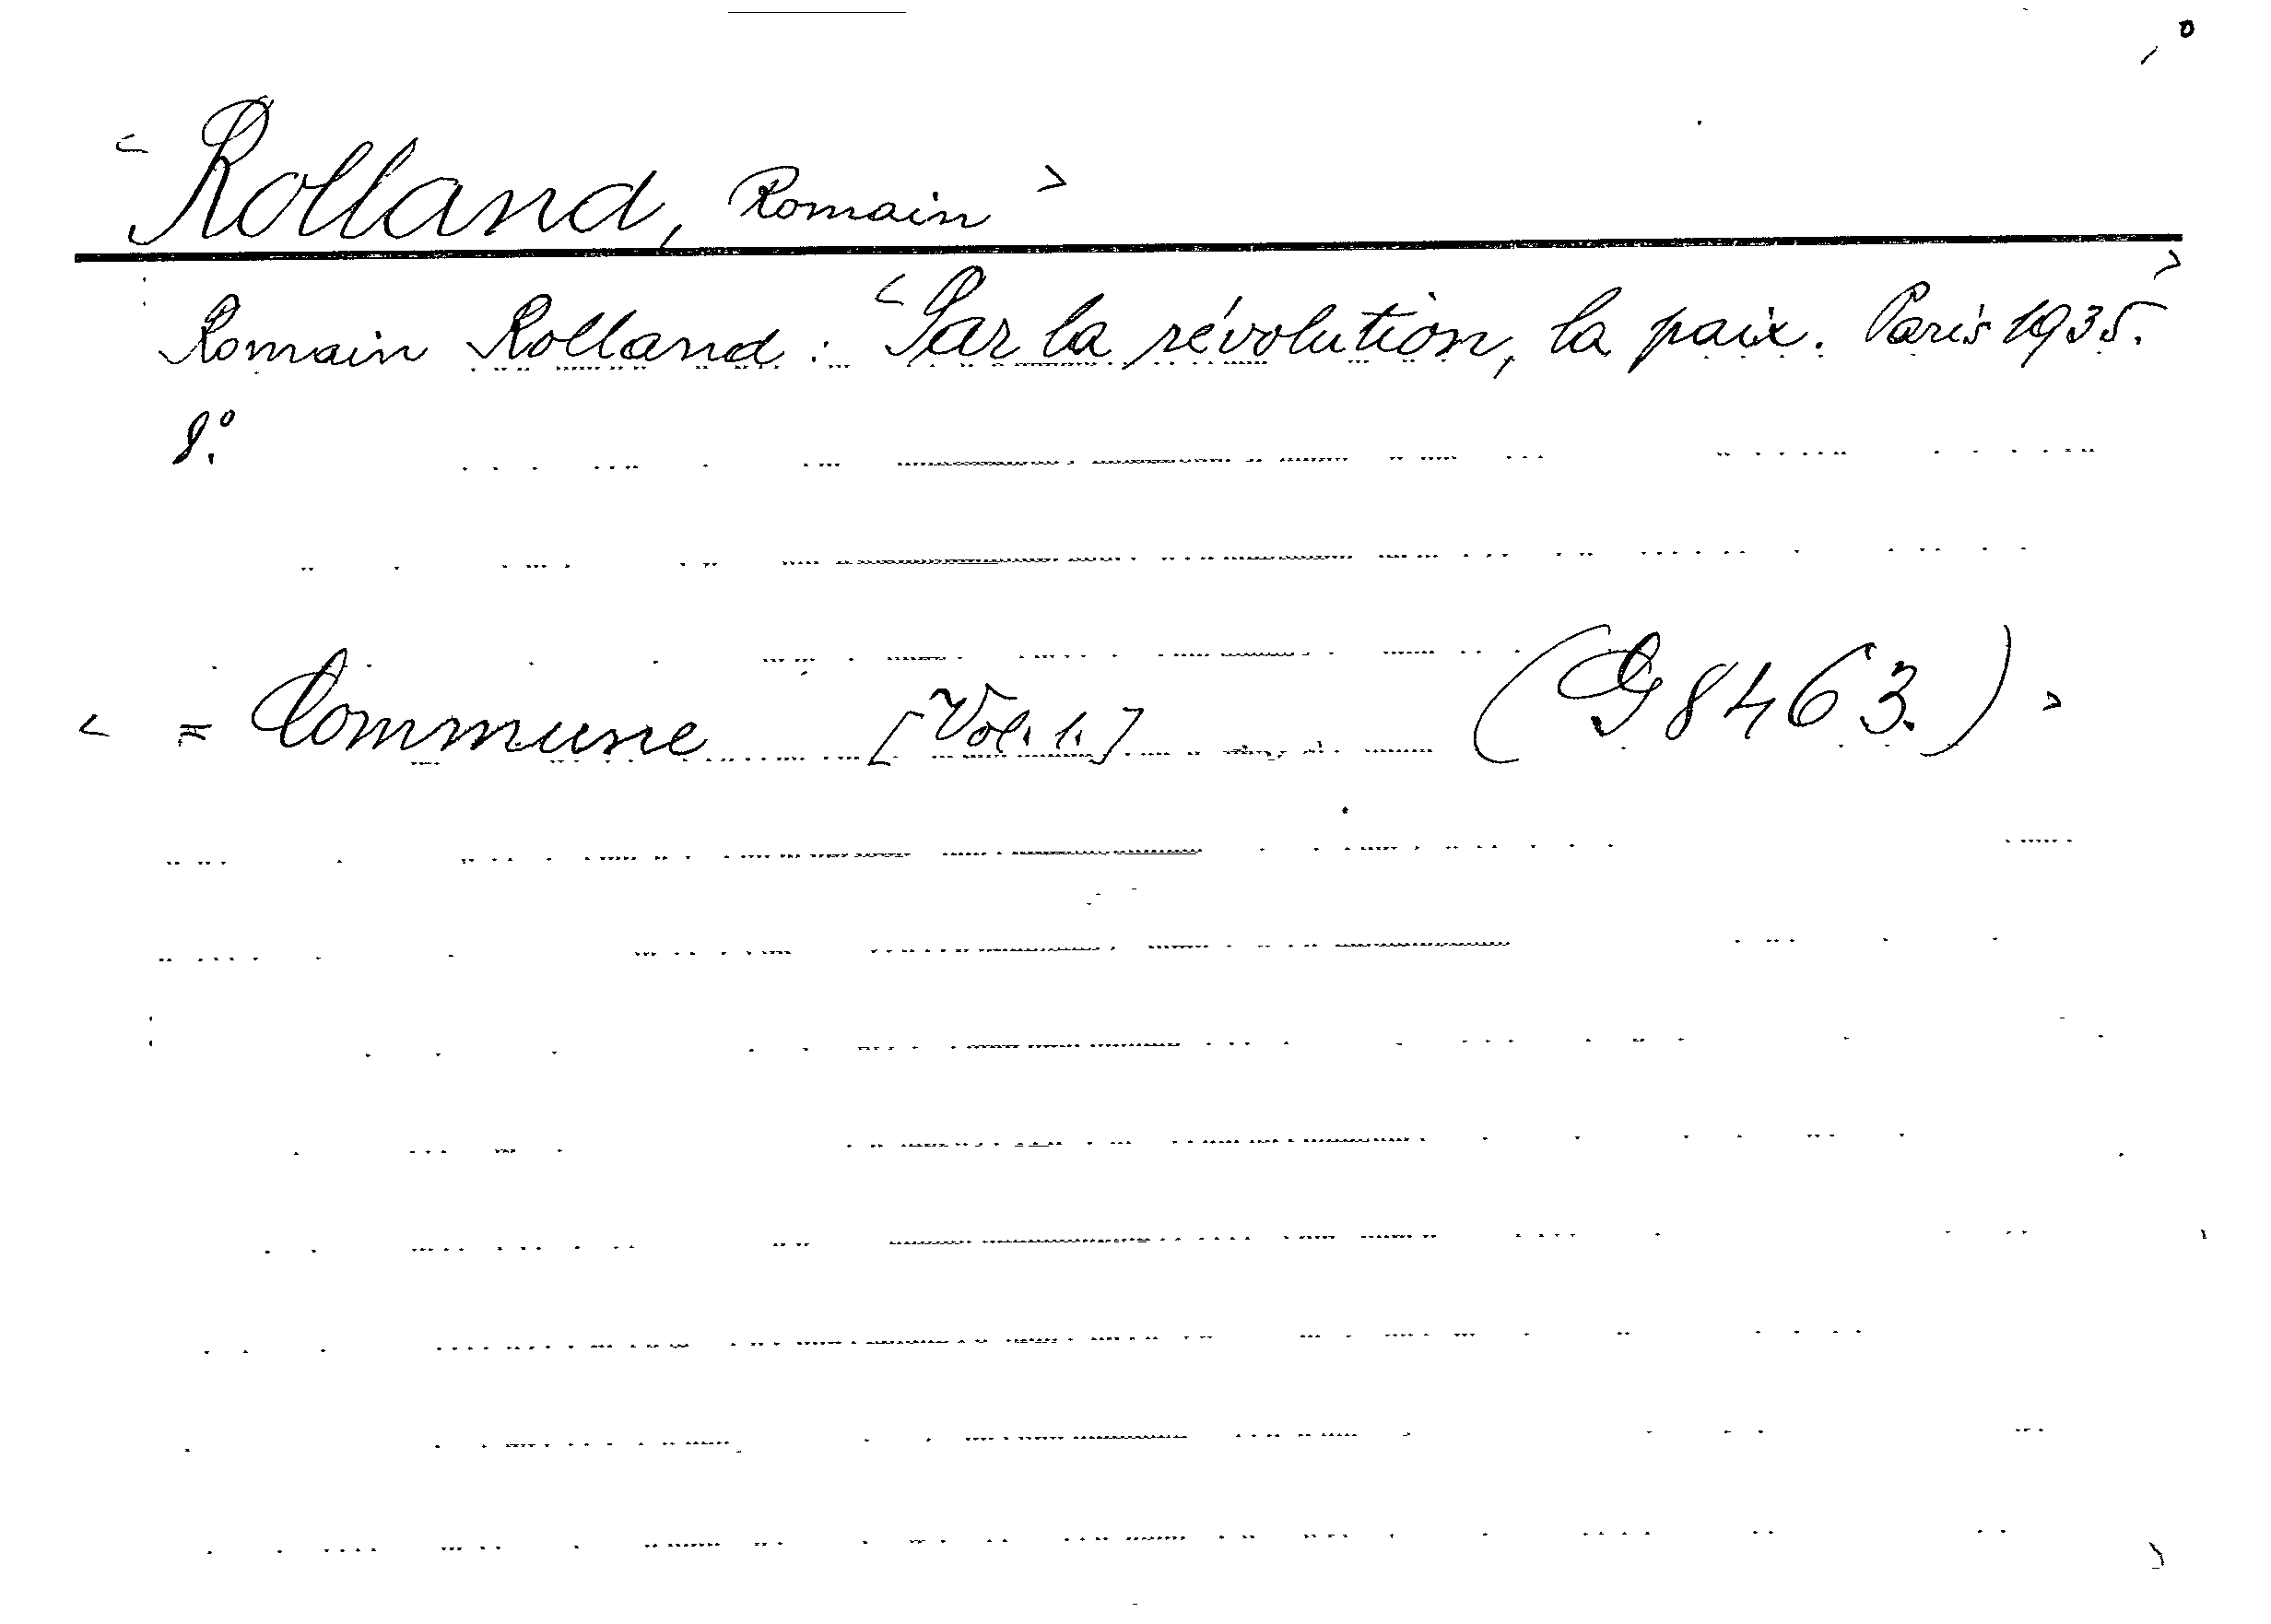 < Rolland, Romain >
Romain Rolland: < Par la révolution, la paix. Paris 1935. >
8°.
< = Commune [Vol. 1.] (G 8463.) >